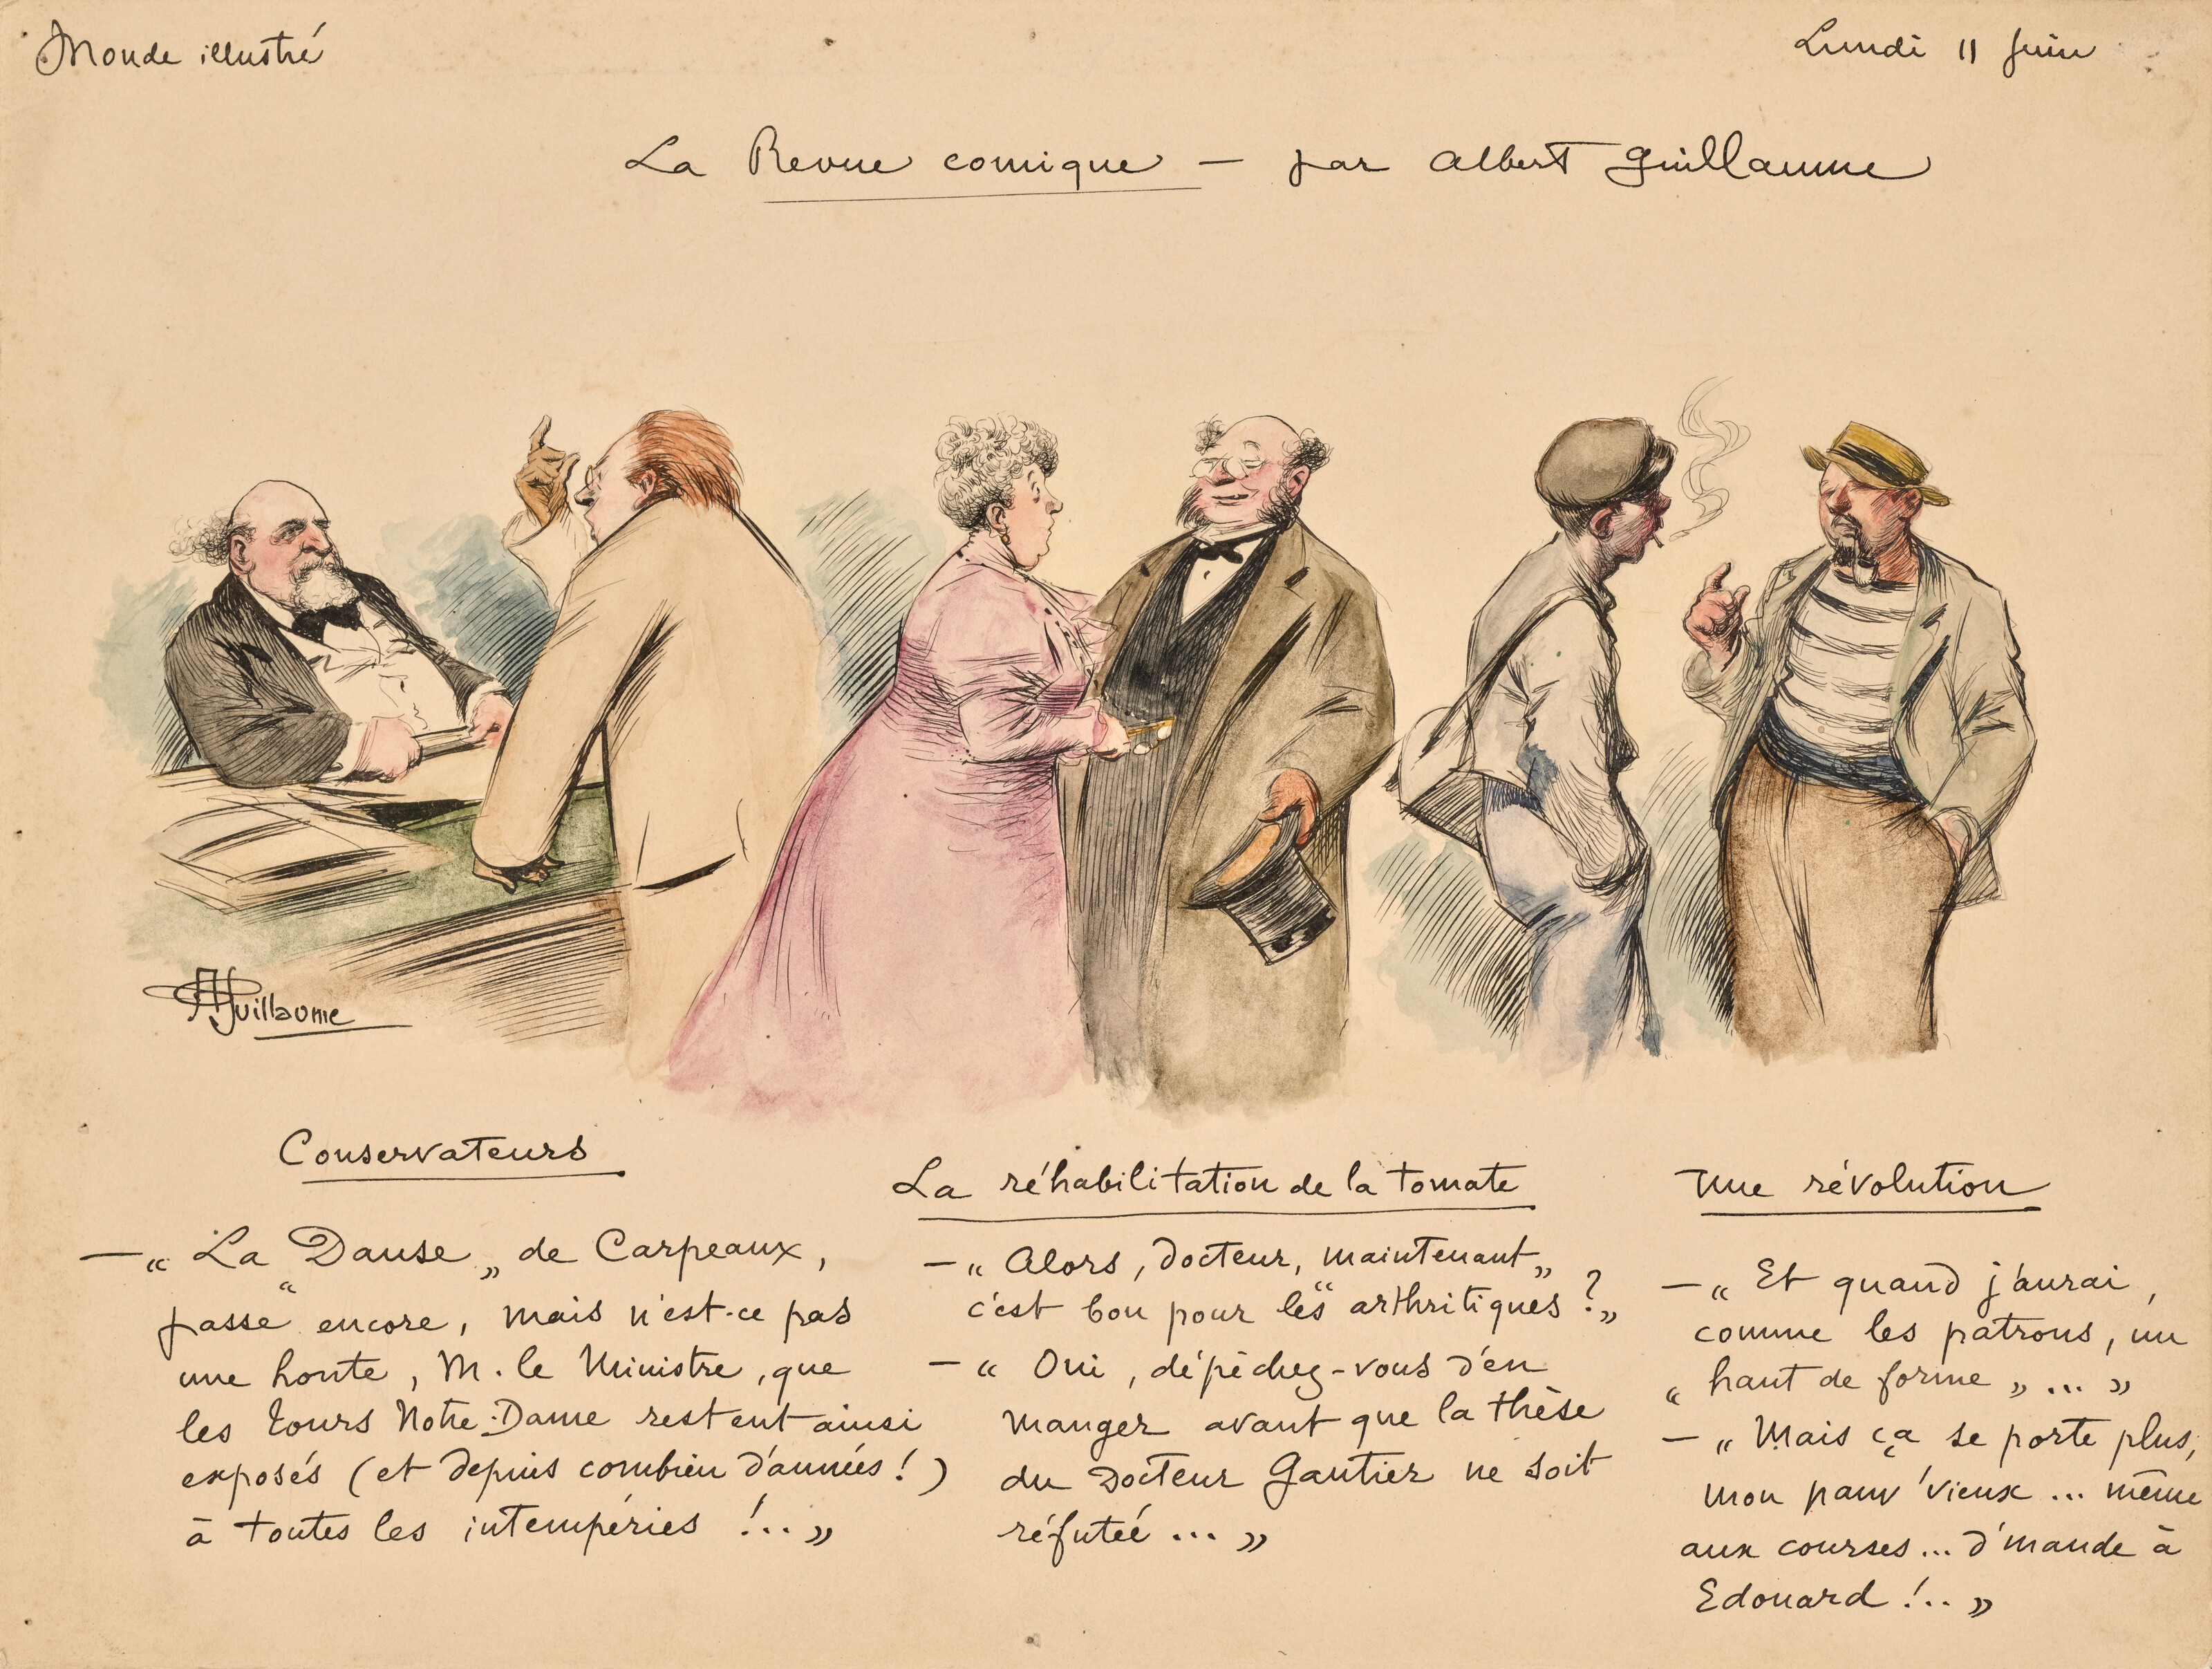 Monde illustré
Lundi 11 Juin
La Revue comique — par Albert Guillaume
AGuillaume
Conservateurs
— « La "Danse" de Carpeaux,
passe encore, mais n'est-ce pas
une honte, M. le Ministre, que
les tours Notre-Dame restent ainsi
exposés (et depuis combien d'années!)
à toutes les intempéries !.. »
La réhabilitation de la tomate
— « Alors, docteur, maintenant
c'est bon pour les "arthritiques" ? »
— « Oui, dépêchez-vous d'en
manger avant que la thèse
du Docteur Gautier ne soit
réfutée ... »
Une révolution
— « Et quand j'aurai,
comme les patrons, un
« haut de forme » ... »
— « Mais ça se porte plus,
mon pauv' vieux ... même
aux courses ... d'mande à
Edouard !.. »